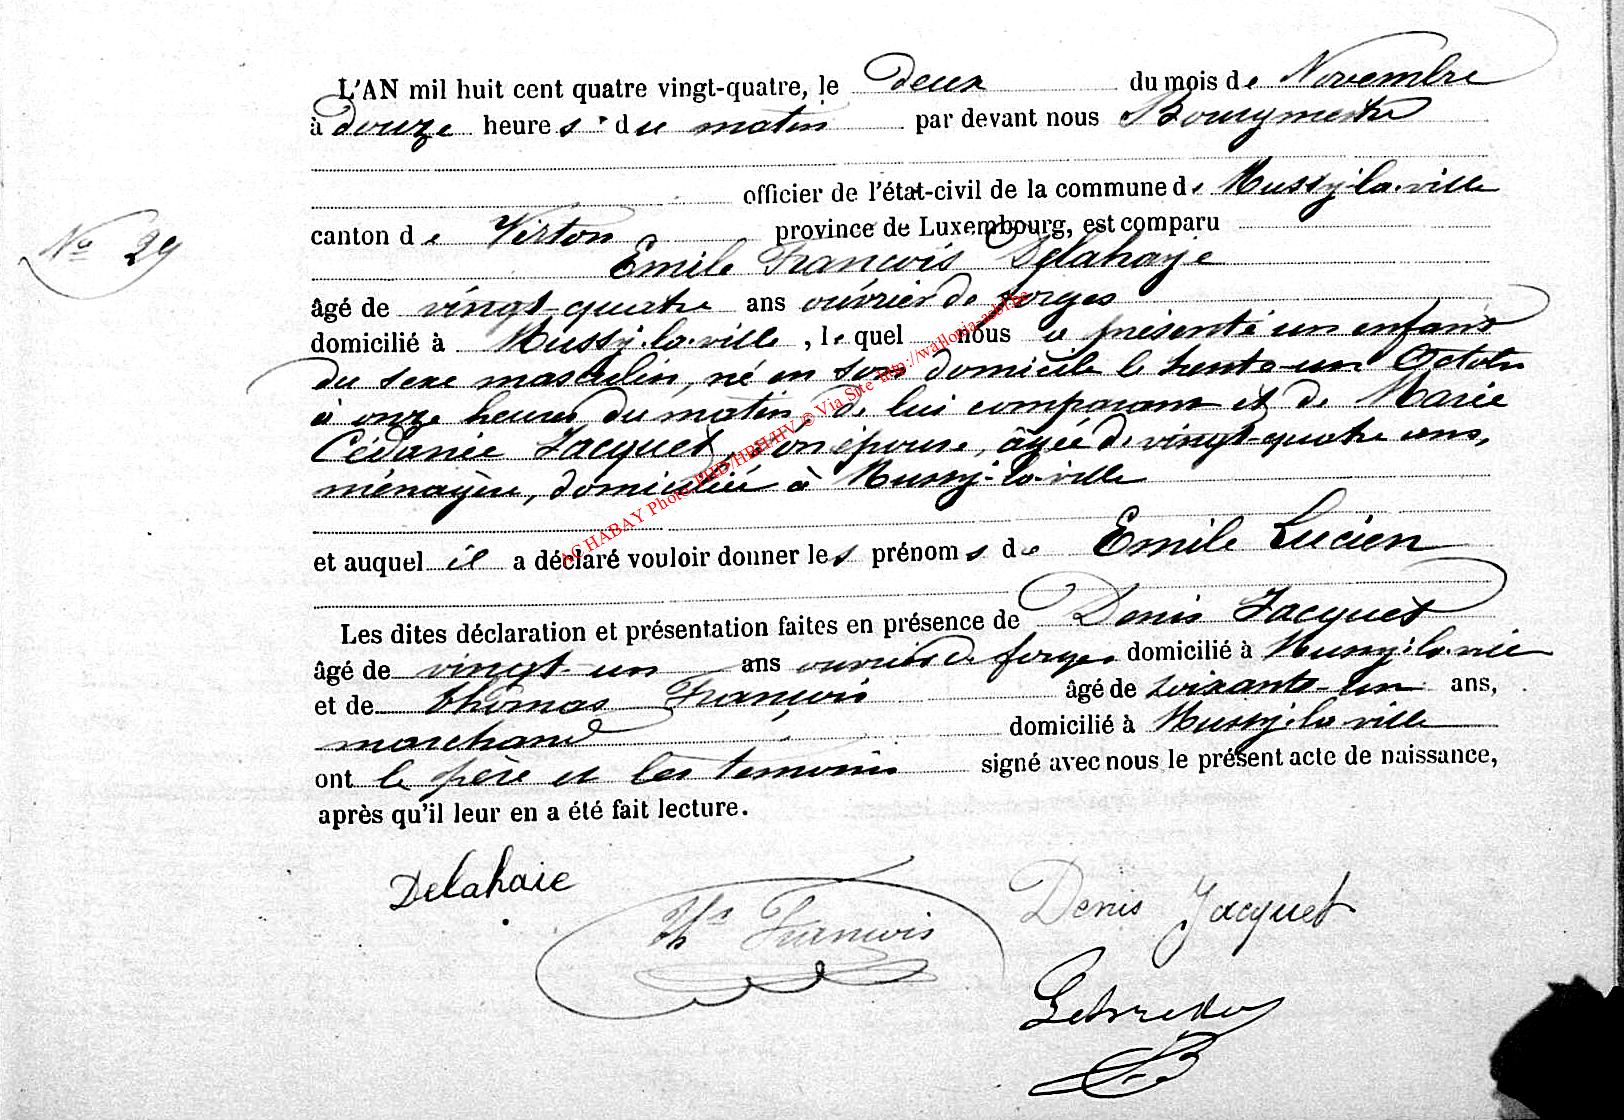 L'AN mil huit cent quatre vingt-quatre, le deux du mois de Novembre
à douze heures du matin par devant nous Bourgmestre
officier de l'état-civil de la commune de Mussy-la-ville
canton de Virton province de Luxembourg, est comparu
No 29
Emile François Delahaye
âgé de vingt-quatre ans ouvrier de forges
domicilié à Mussy-la-ville, lequel nous a présenté un enfant
du sexe masculin, né en son domicile le trente-un Octobre
à onze heures du matin de lui comparant et de Marie
Cédanie Jacquet, son épouse, âgée de vingt-quatre ans,
ménagère, domiciliée à Mussy-la-ville
et auquel il a déclaré vouloir donner les prénoms de Emile Lucien
Les dites déclaration et présentation faites en présence de Denis Jacquet
âgé de vingt-un ans ouvrier de forges domicilié à Mussy-la-ville
et de thomas François âgé de soixante-un ans,
marchand domicilié à Mussy-la-ville
ont le père et les témoins signé avec nous le présent acte de naissance,
après qu'il leur en a été fait lecture.
Delahaie
Ths François
Denis Jacquet
AC HABAY Photo PHD/HBH/HV © Via Site http://wallonia-asbl.be